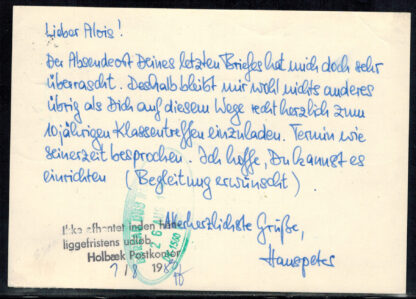 Lieber Alois!
Der Absendeort Deines letzten Briefes hat mich doch sehr
überrascht. Deshalb bleibt mir wohl nichts anderes
übrig als Dich auf diesem Wege recht herzlich zum
10jährigen Klassentreffen einzuladen. Termin wie
seinerzeit besprochen. Ich hoffe, Du kannst es
einrichten (Begleitung erwünscht).
Allerherzlichste Grüße,
Hanspeter
Ikke afhentet inden
liggefristens udløb.
Holbæk Postkontor
7/8 198